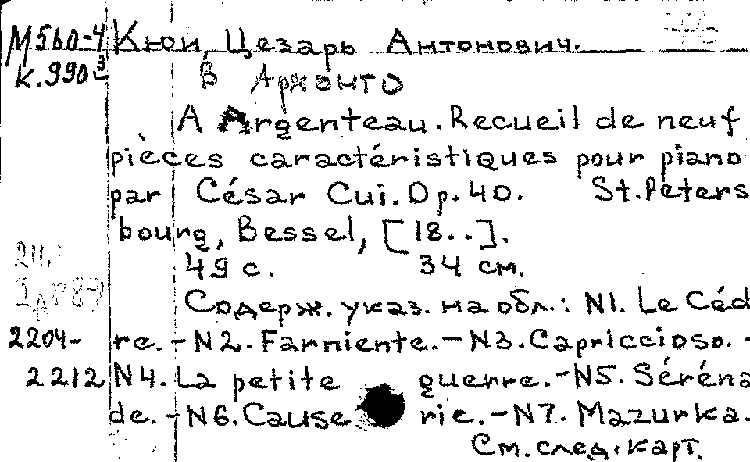 М560-4 Кюи, Цезарь Антонович.
К.990³ В Аржанто
A Argenteau. Recueil de neuf
pièces caractéristiques pour piano
par César Cui. Op. 40. St. Peters
bourg, Bessel, [18..].
49 с. 34 см.
Содерж. указ. на обл.: N1. Le Céd
2204- re. - N2. Farniente. - N3. Capriccioso. -
2212 N4. La petite guerre. - N5. Séréna
de. - N6. Cause rie. - N7. Mazurka.
См. след. карт.